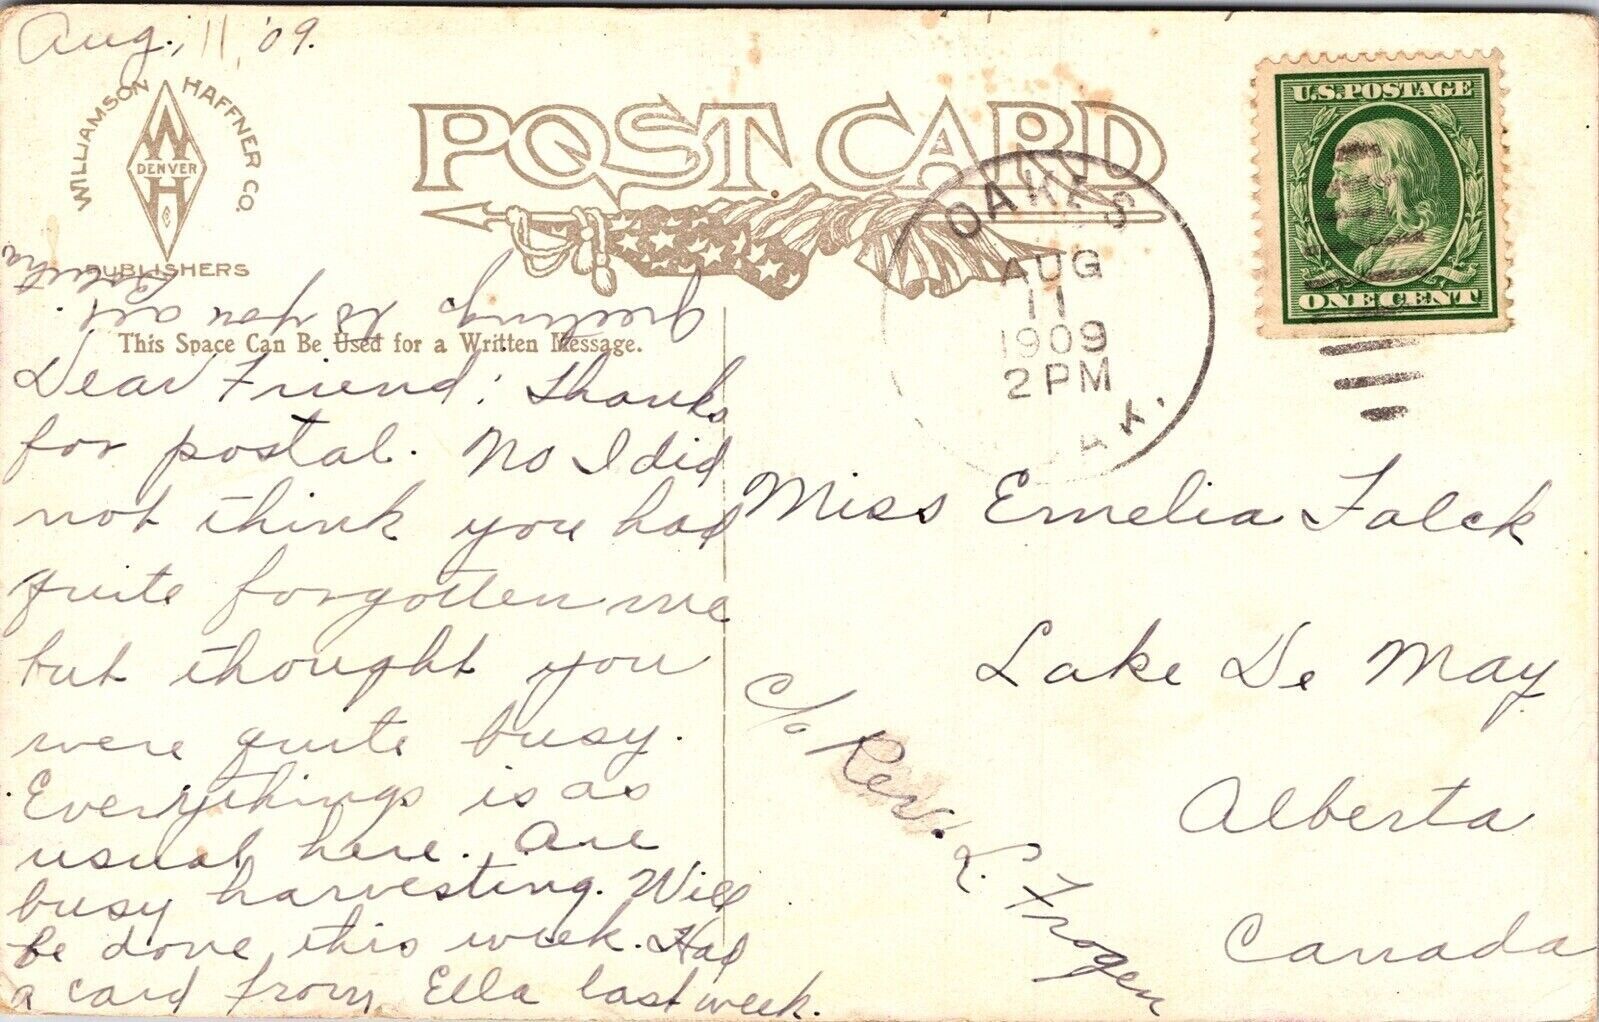 Aug. 11, '09.
WILLIAMSON HAFFNER CO.
W
DENVER
H
Co
PUBLISHERS
POST CARD
This Space Can Be Used for a Written Message.
Dear Friend: Thanks
for postal. No I did
not think you had
quite forgotten me
but thought you
were quite busy.
Everythings is as
usual here. Are
busy harvesting. Will
be done this week. Had
a card from Ella last week.
Greetings to you all.
OAKES
AUG
11
1909
2 PM
AK.
U.S. POSTAGE
ONE CENT
Miss Emelia Falck
Lake De May
Alberta
Canada
c/o Rev. L. Frogen